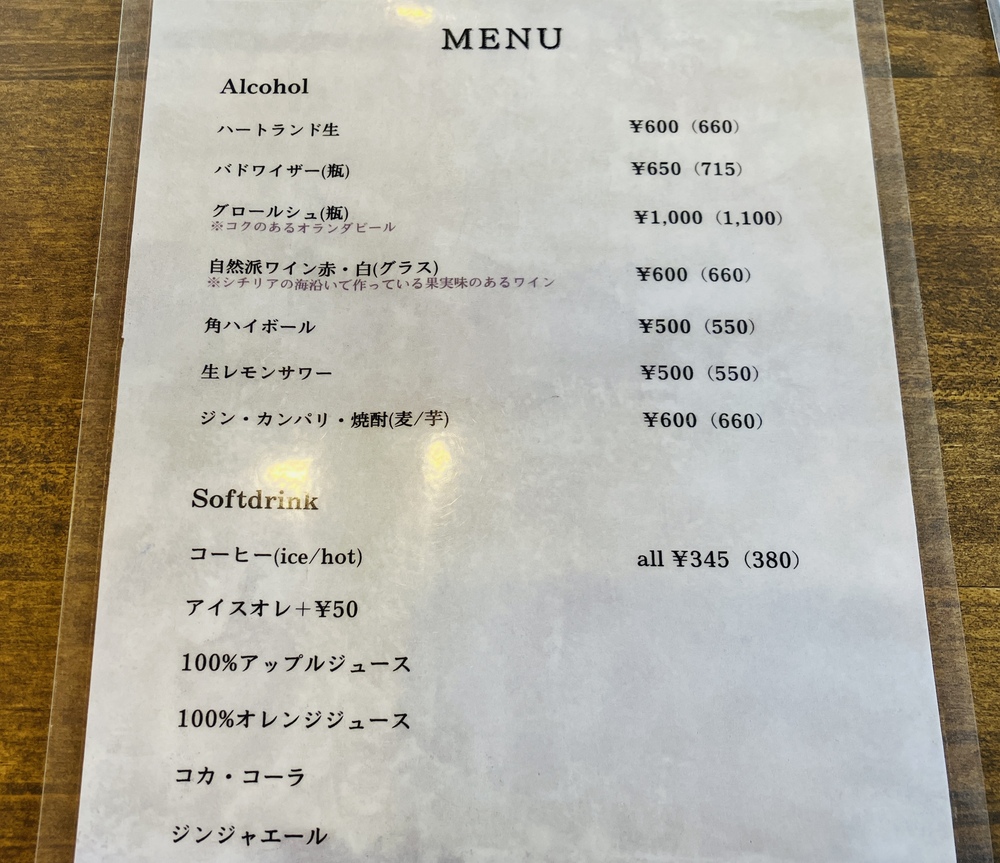 MENU
Alcohol
ハートランド生 ¥600（660）
バドワイザー(瓶) ¥650（715）
グロールシュ(瓶) ¥1,000（1,100）
※コクのあるオランダビール
自然派ワイン赤・白(グラス) ¥600（660）
※シチリアの海沿いで作っている果実味のあるワイン
角ハイボール ¥500（550）
生レモンサワー ¥500（550）
ジン・カンパリ・焼酎(麦/芋) ¥600（660）
Softdrink
コーヒー(ice/hot) all ¥345（380）
アイスオレ＋¥50
100%アップルジュース
100%オレンジジュース
コカ・コーラ
ジンジャエール